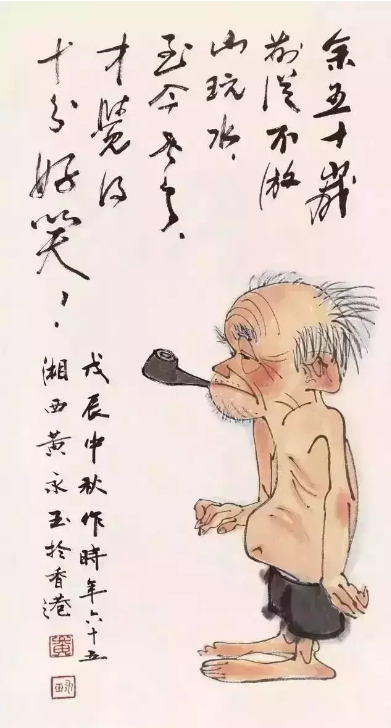 余五十歲
前從不游
山玩水，
至今老了、
才覺得
十分好笑！
戊辰中秋作時年六十五
湘西黃永玉於香港
黃